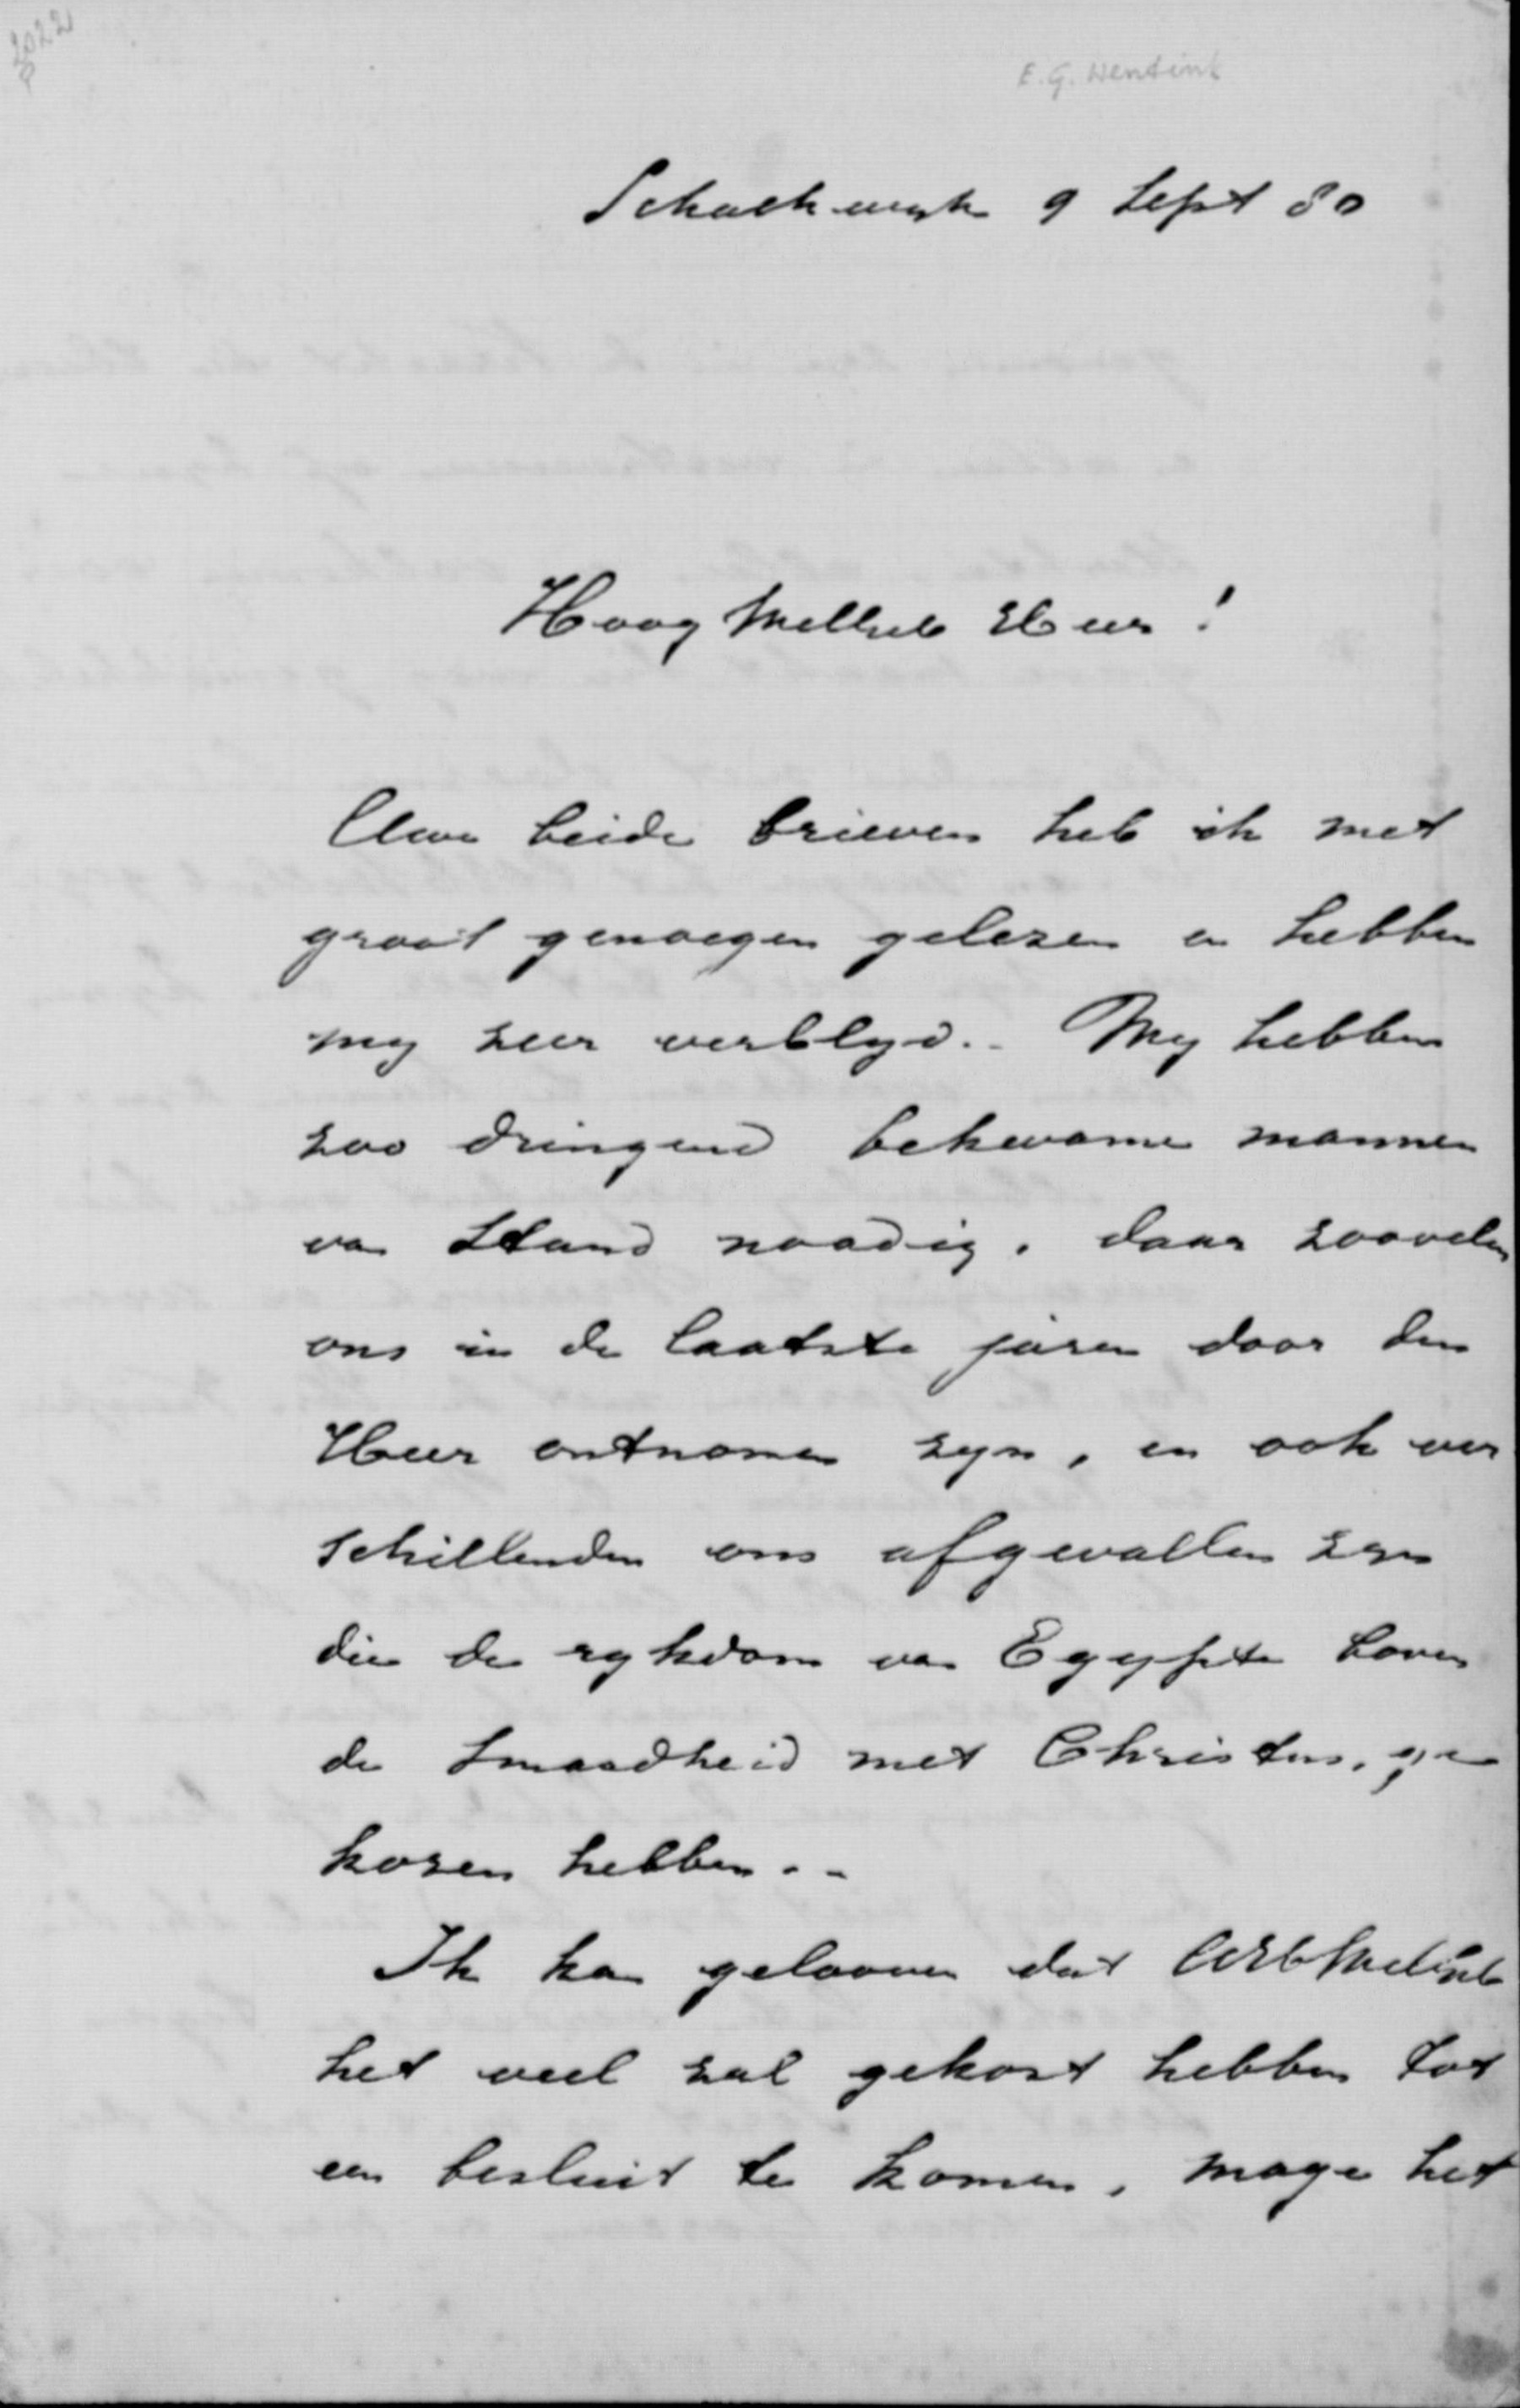 2022
E.G. Wentink
Schalkwyk 9 Sept 80
Hoog Welleb Heer!
Uwe beide brieven heb ik met
groot genoegen gelezen en hebben
my zeer verblyd.. Wy hebben
zoo dringend bekwame mannen
van Stand noodig, daar zoovelen
ons in de laatste jaren door den
Heer ontnomen zyn, en ook ver
schillenden ons afgevallen zyn
die de rykdom van Egypte boven
de Smaadheid met Christus, ge
kozen hebben..
Ik kan gelooven dat UHWelEb
het veel zal gekost hebben tot
een besluit te komen, moge het